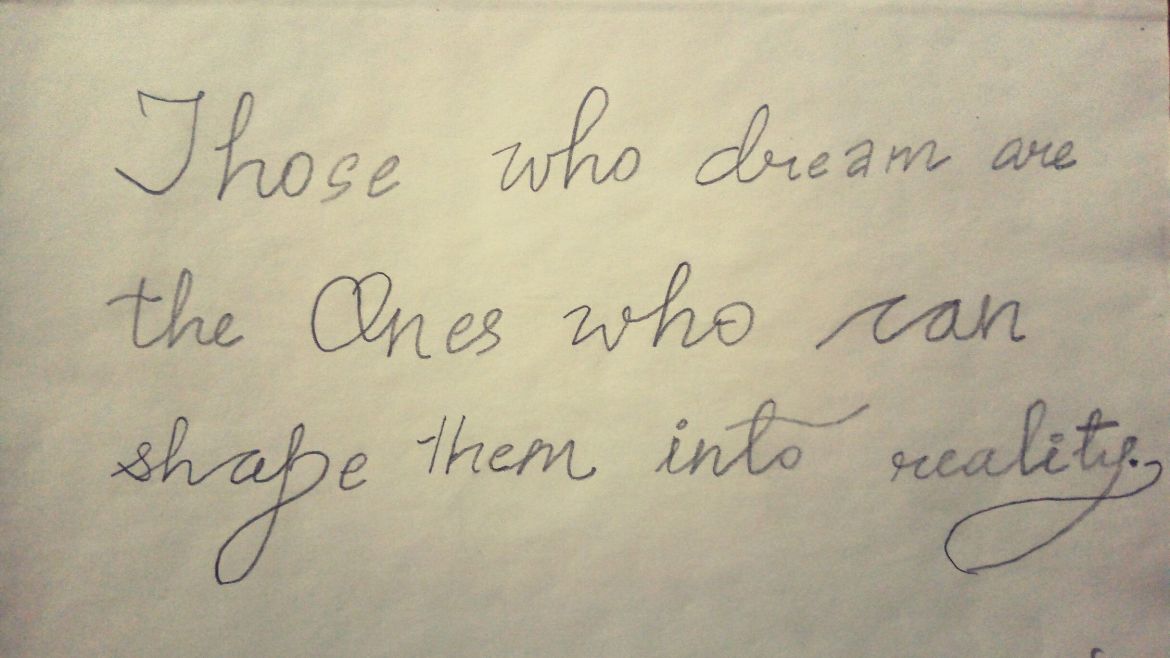 Those who dream are
the Ones who can
shape them into reality.